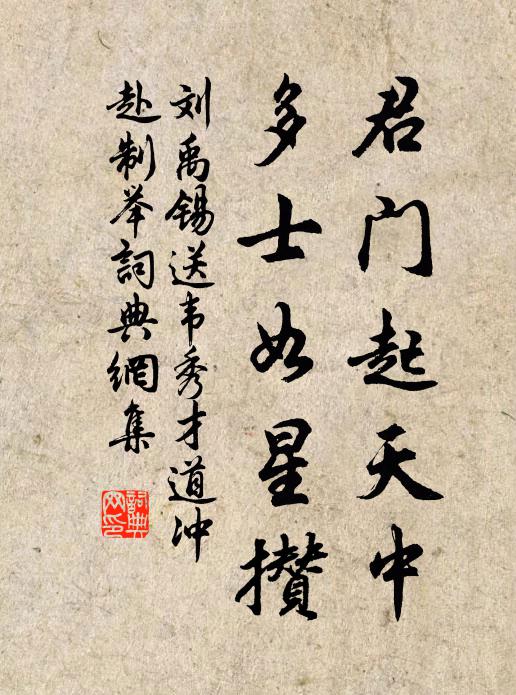 君门起天中
多士如星攒
刘禹锡送韦秀才道冲
赴制举詞典網集
詞典网印